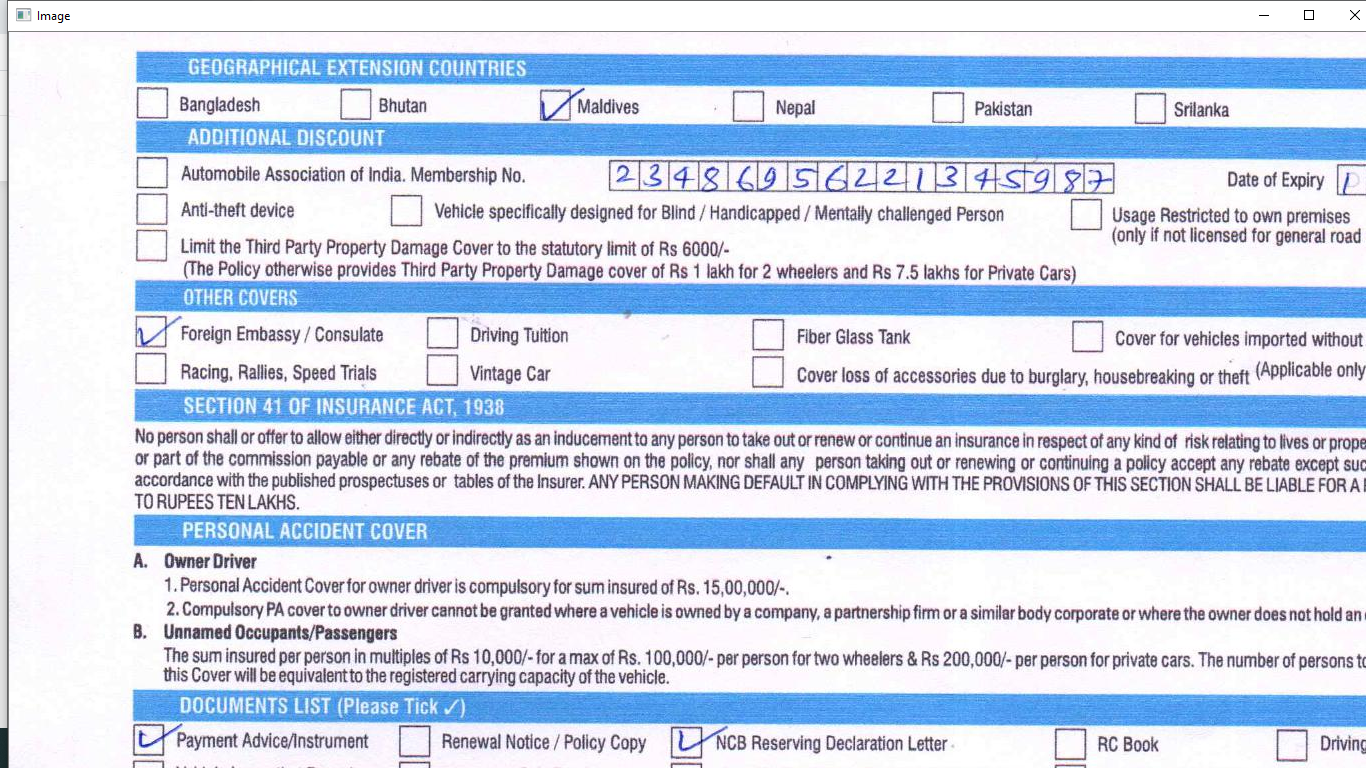 Image
GEOGRAPHICAL EXTENSION COUNTRIES
Bangladesh Bhutan Maldives Nepal Pakistan Srilanka
ADDITIONAL DISCOUNT
Automobile Association of India. Membership No. 23486956221345987 Date of Expiry
Anti-theft device Vehicle specifically designed for Blind / Handicapped / Mentally challenged Person Usage Restricted to own premises
(only if not licensed for general road
Limit the Third Party Property Damage Cover to the statutory limit of Rs 6000/-
(The Policy otherwise provides Third Party Property Damage cover of Rs 1 lakh for 2 wheelers and Rs 7.5 lakhs for Private Cars)
OTHER COVERS
Foreign Embassy / Consulate Driving Tuition Fiber Glass Tank Cover for vehicles imported without
Racing, Rallies, Speed Trials Vintage Car Cover loss of accessories due to burglary, housebreaking or theft (Applicable only
SECTION 41 OF INSURANCE ACT, 1938
No person shall or offer to allow either directly or indirectly as an inducement to any person to take out or renew or continue an insurance in respect of any kind of risk relating to lives or prope
or part of the commission payable or any rebate of the premium shown on the policy, nor shall any person taking out or renewing or continuing a policy accept any rebate except suc
accordance with the published prospectuses or tables of the Insurer. ANY PERSON MAKING DEFAULT IN COMPLYING WITH THE PROVISIONS OF THIS SECTION SHALL BE LIABLE FOR A
TO RUPEES TEN LAKHS.
PERSONAL ACCIDENT COVER
A. Owner Driver
1. Personal Accident Cover for owner driver is compulsory for sum insured of Rs. 15,00,000/-.
2. Compulsory PA cover to owner driver cannot be granted where a vehicle is owned by a company, a partnership firm or a similar body corporate or where the owner does not hold an
B. Unnamed Occupants/Passengers
The sum insured per person in multiples of Rs 10,000/- for a max of Rs. 100,000/- per person for two wheelers & Rs 200,000/- per person for private cars. The number of persons to
this Cover will be equivalent to the registered carrying capacity of the vehicle.
DOCUMENTS LIST (Please Tick ✓)
Payment Advice/Instrument Renewal Notice / Policy Copy NCB Reserving Declaration Letter RC Book Driving